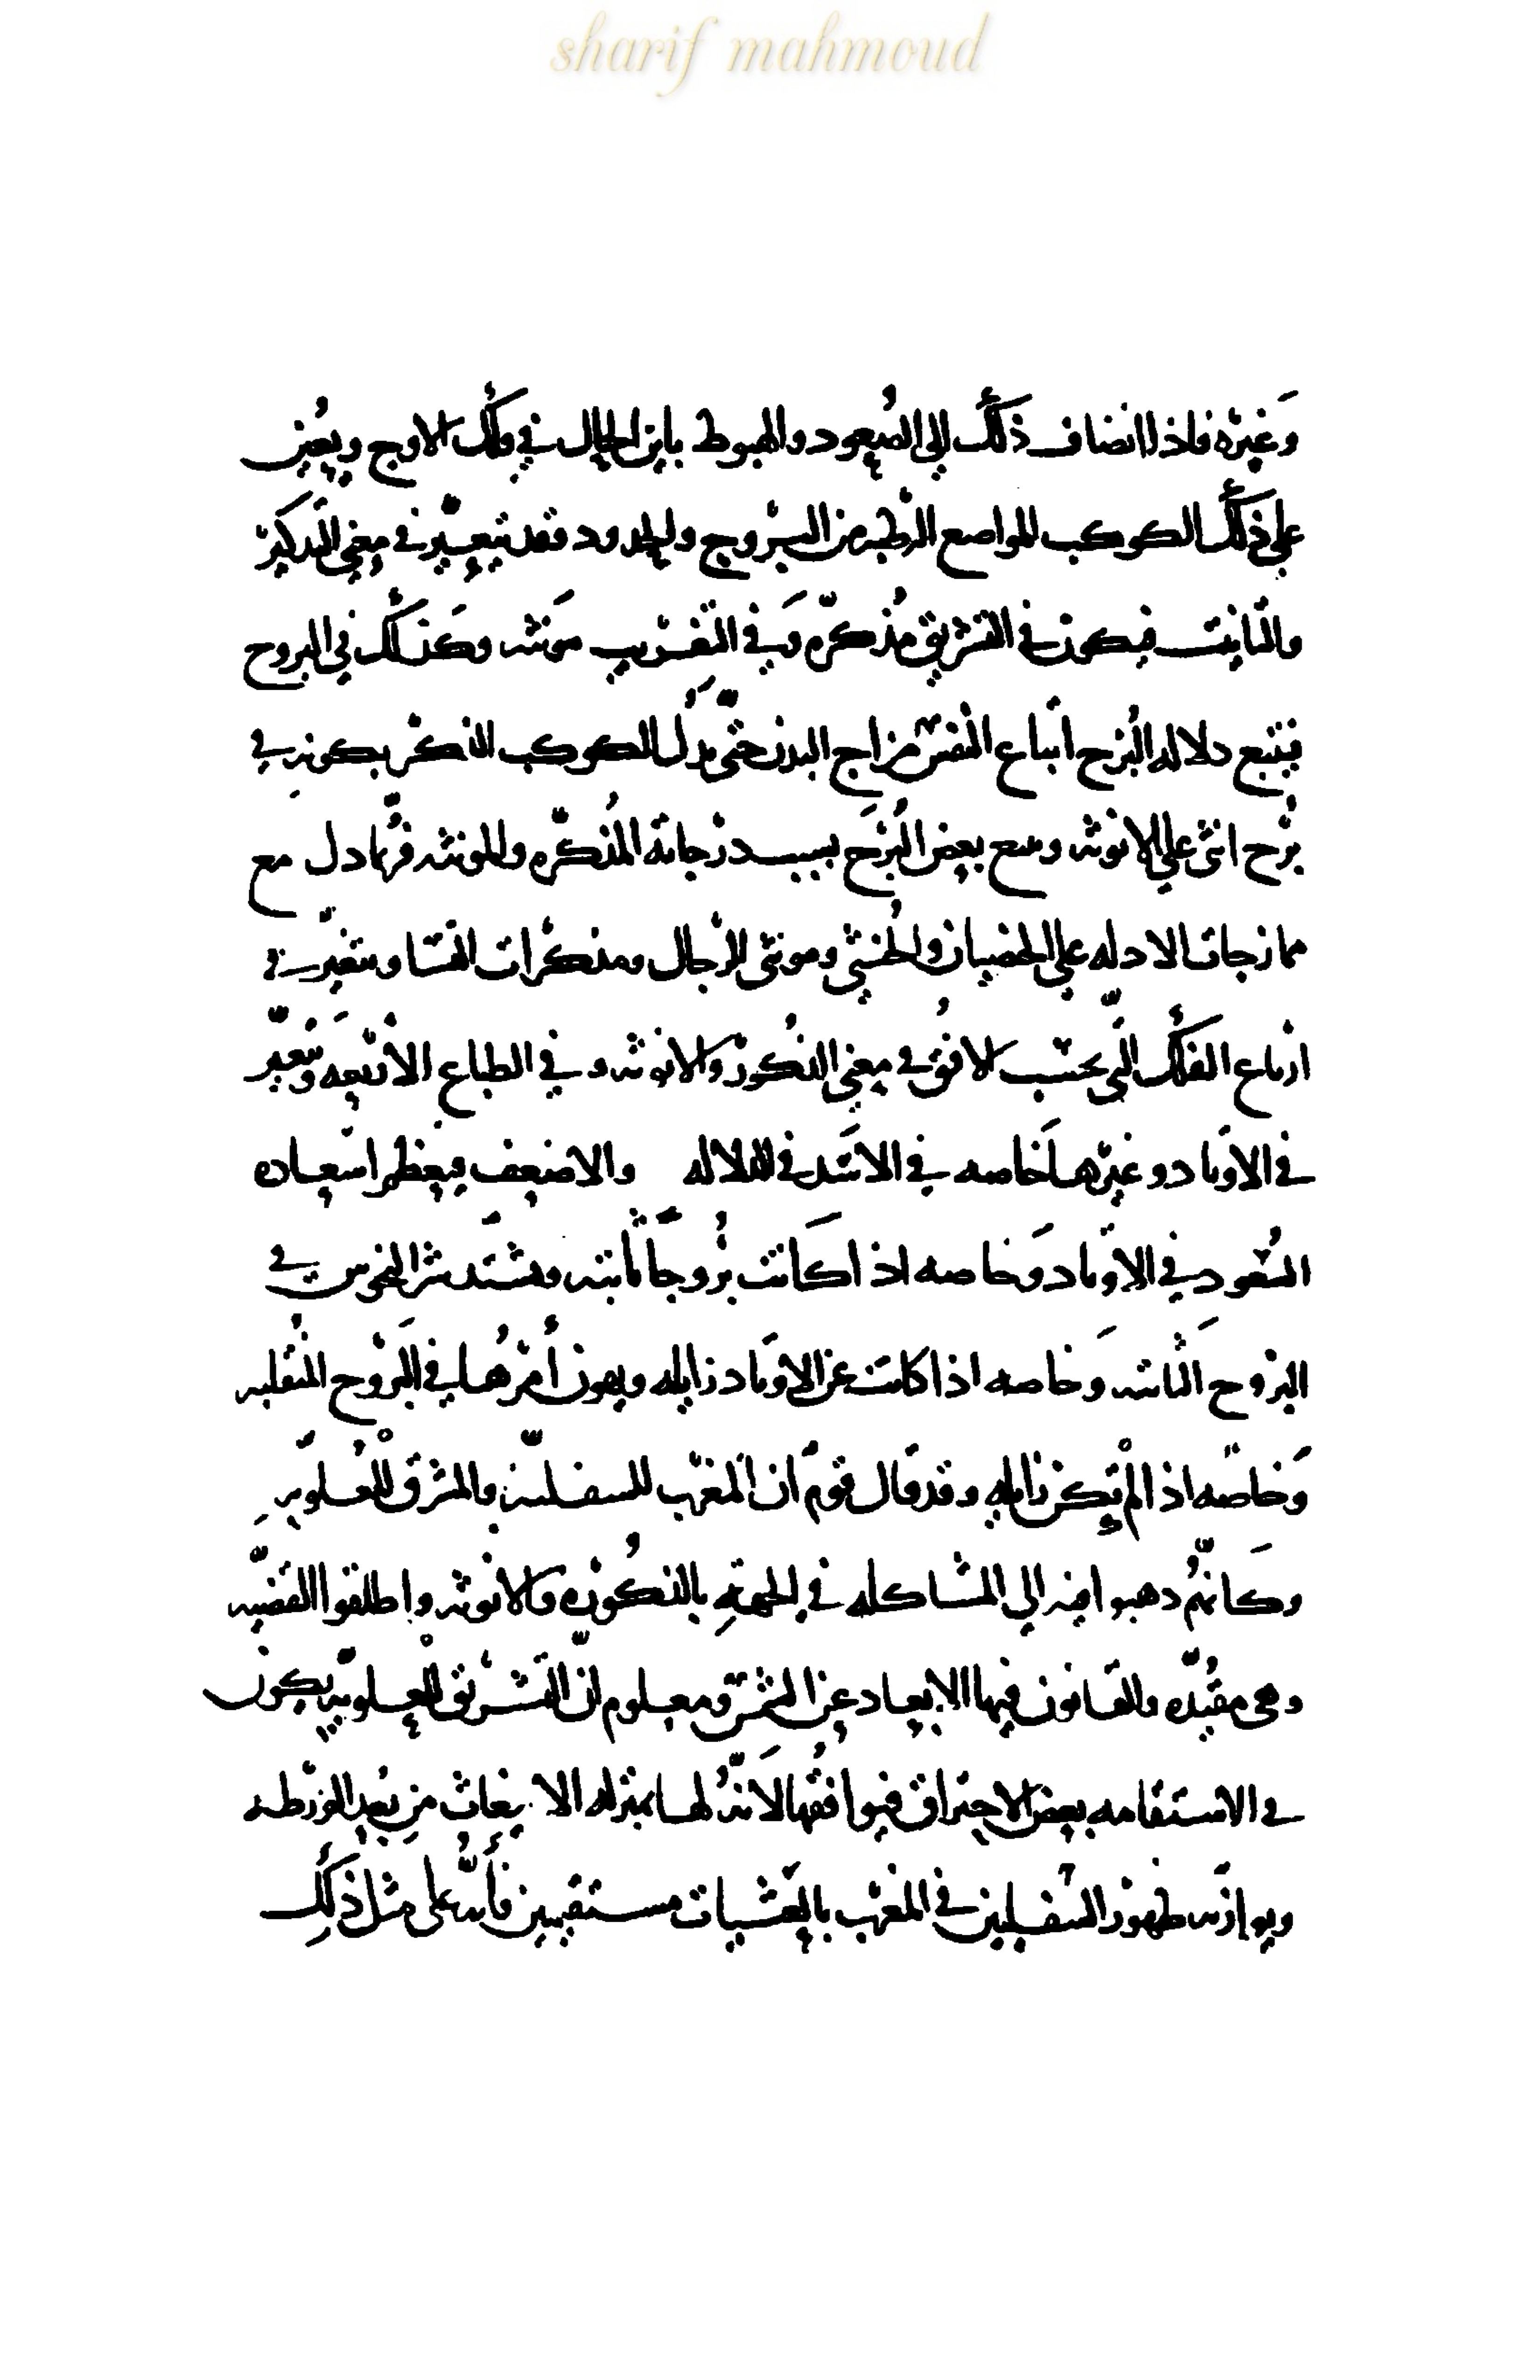 sharif mahmoud
وَغيرْه فاذا انضاف ذلك إلى الصُعود والهبوط باين الحال في فلك الاوج ويعين
على ذلك الكوكب المواضع الرطبه من البرْوج والحدود فقد يتغيّر في معنى التذكير
والتانيث فيكون في التشريق مُذكرّه وَفي التغرْيب مَونثه وكَذلك في البروج
فيتبع دلاله البُرْج اتباع النفس مزاج البدن حتّى يَدُل الكوكب الذكر بكونه في
بُرْج انثى على الانوثه ومع بعض البُرْج بسبب درْجاته المُذكّره والمونثه فرُبّما دل مع
ممازجات الادله على الخصيان والخُنثي ومونثى الرْجال ومذكرْات النسا ويتغيّر في
ارْباع الفلك الّتي بحسْب الافُق في معنى الذكُورْ والانوثه وفي الطباع الأرْبَعه وَيُتغيّر
في الاوَتاد وغيرْها خَاصه في الاشَد في الدلاله والاضعف فيعظم اسْعاده
السُعود في الاوَتاد وَخاصه اذا كَانت بُرْوجَاً ثابَّته ويشتَد شر النحوس في
البرْوج الثَابته وَخاصه اذا كانت عن الاوتَاد زايله ويهون أمْرُها في البَرْوج المنُقلبه
وَخاصّه اذا لمْ تكن زايله وقد قَال قومٌ ان المَغرْب للسفليّين والمشرق للعُلويّين
وكَانّهُم ذهبوا فيه الي المشاكله في الجهَةِ بالذكُورْه والانْوثه واطلقوا القضيّه
وهي مقُيّده والقَانون فيها الابعاد عن الشمْس ومعلوم انّ التشرْيق للعلويّه يكون
في الاسْتقامه بعض الاحتراق فيوافقُها لاَنّهُ لها بمنزله الانبعَاث من بَعدِ الورْطه
ويوازيه ظهورْ السُفليين في المغرْب بالعَشيات مستقيمين فأَنّهُ على مثل ذلِك